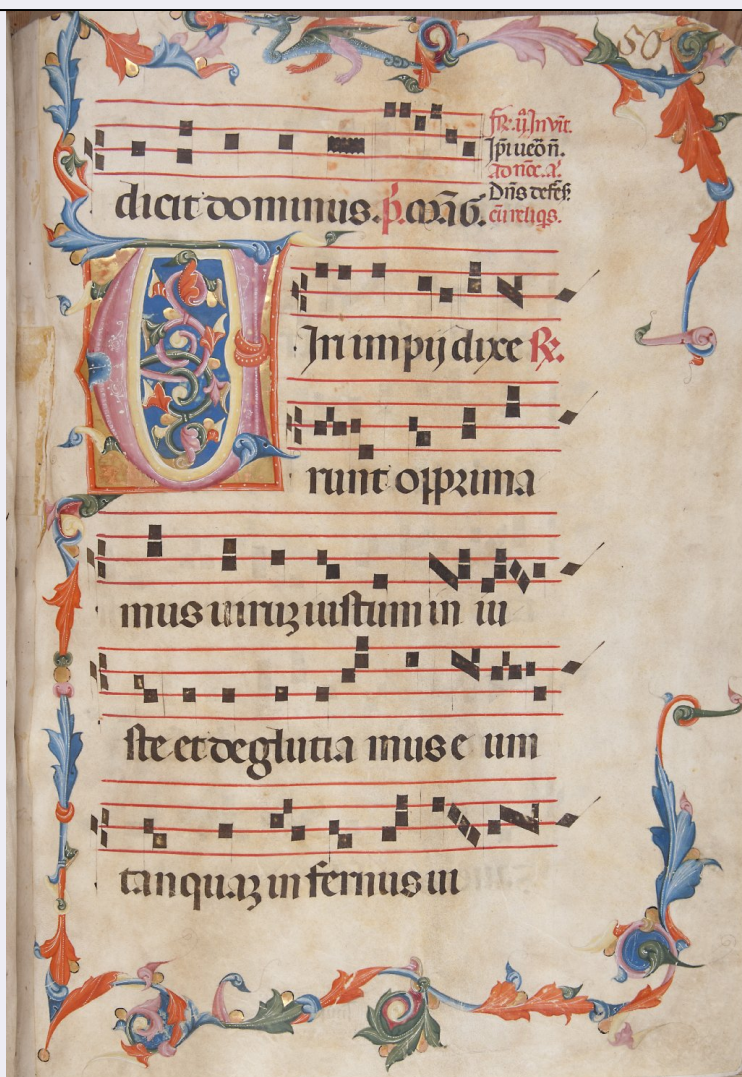 50
dicit dominus. p̃. mãg.
fR̃. ij. Inuit.
Ip̃i ueõ ñ.
ad noc̃. ã.
Dñs defeñ.
cũ reliqs.
Viri impij dixe R̃.
runt opprima
mus uiruꝫ iustum in iu
ste et deglutia mus e um
tanquaꝫ in fernus ui